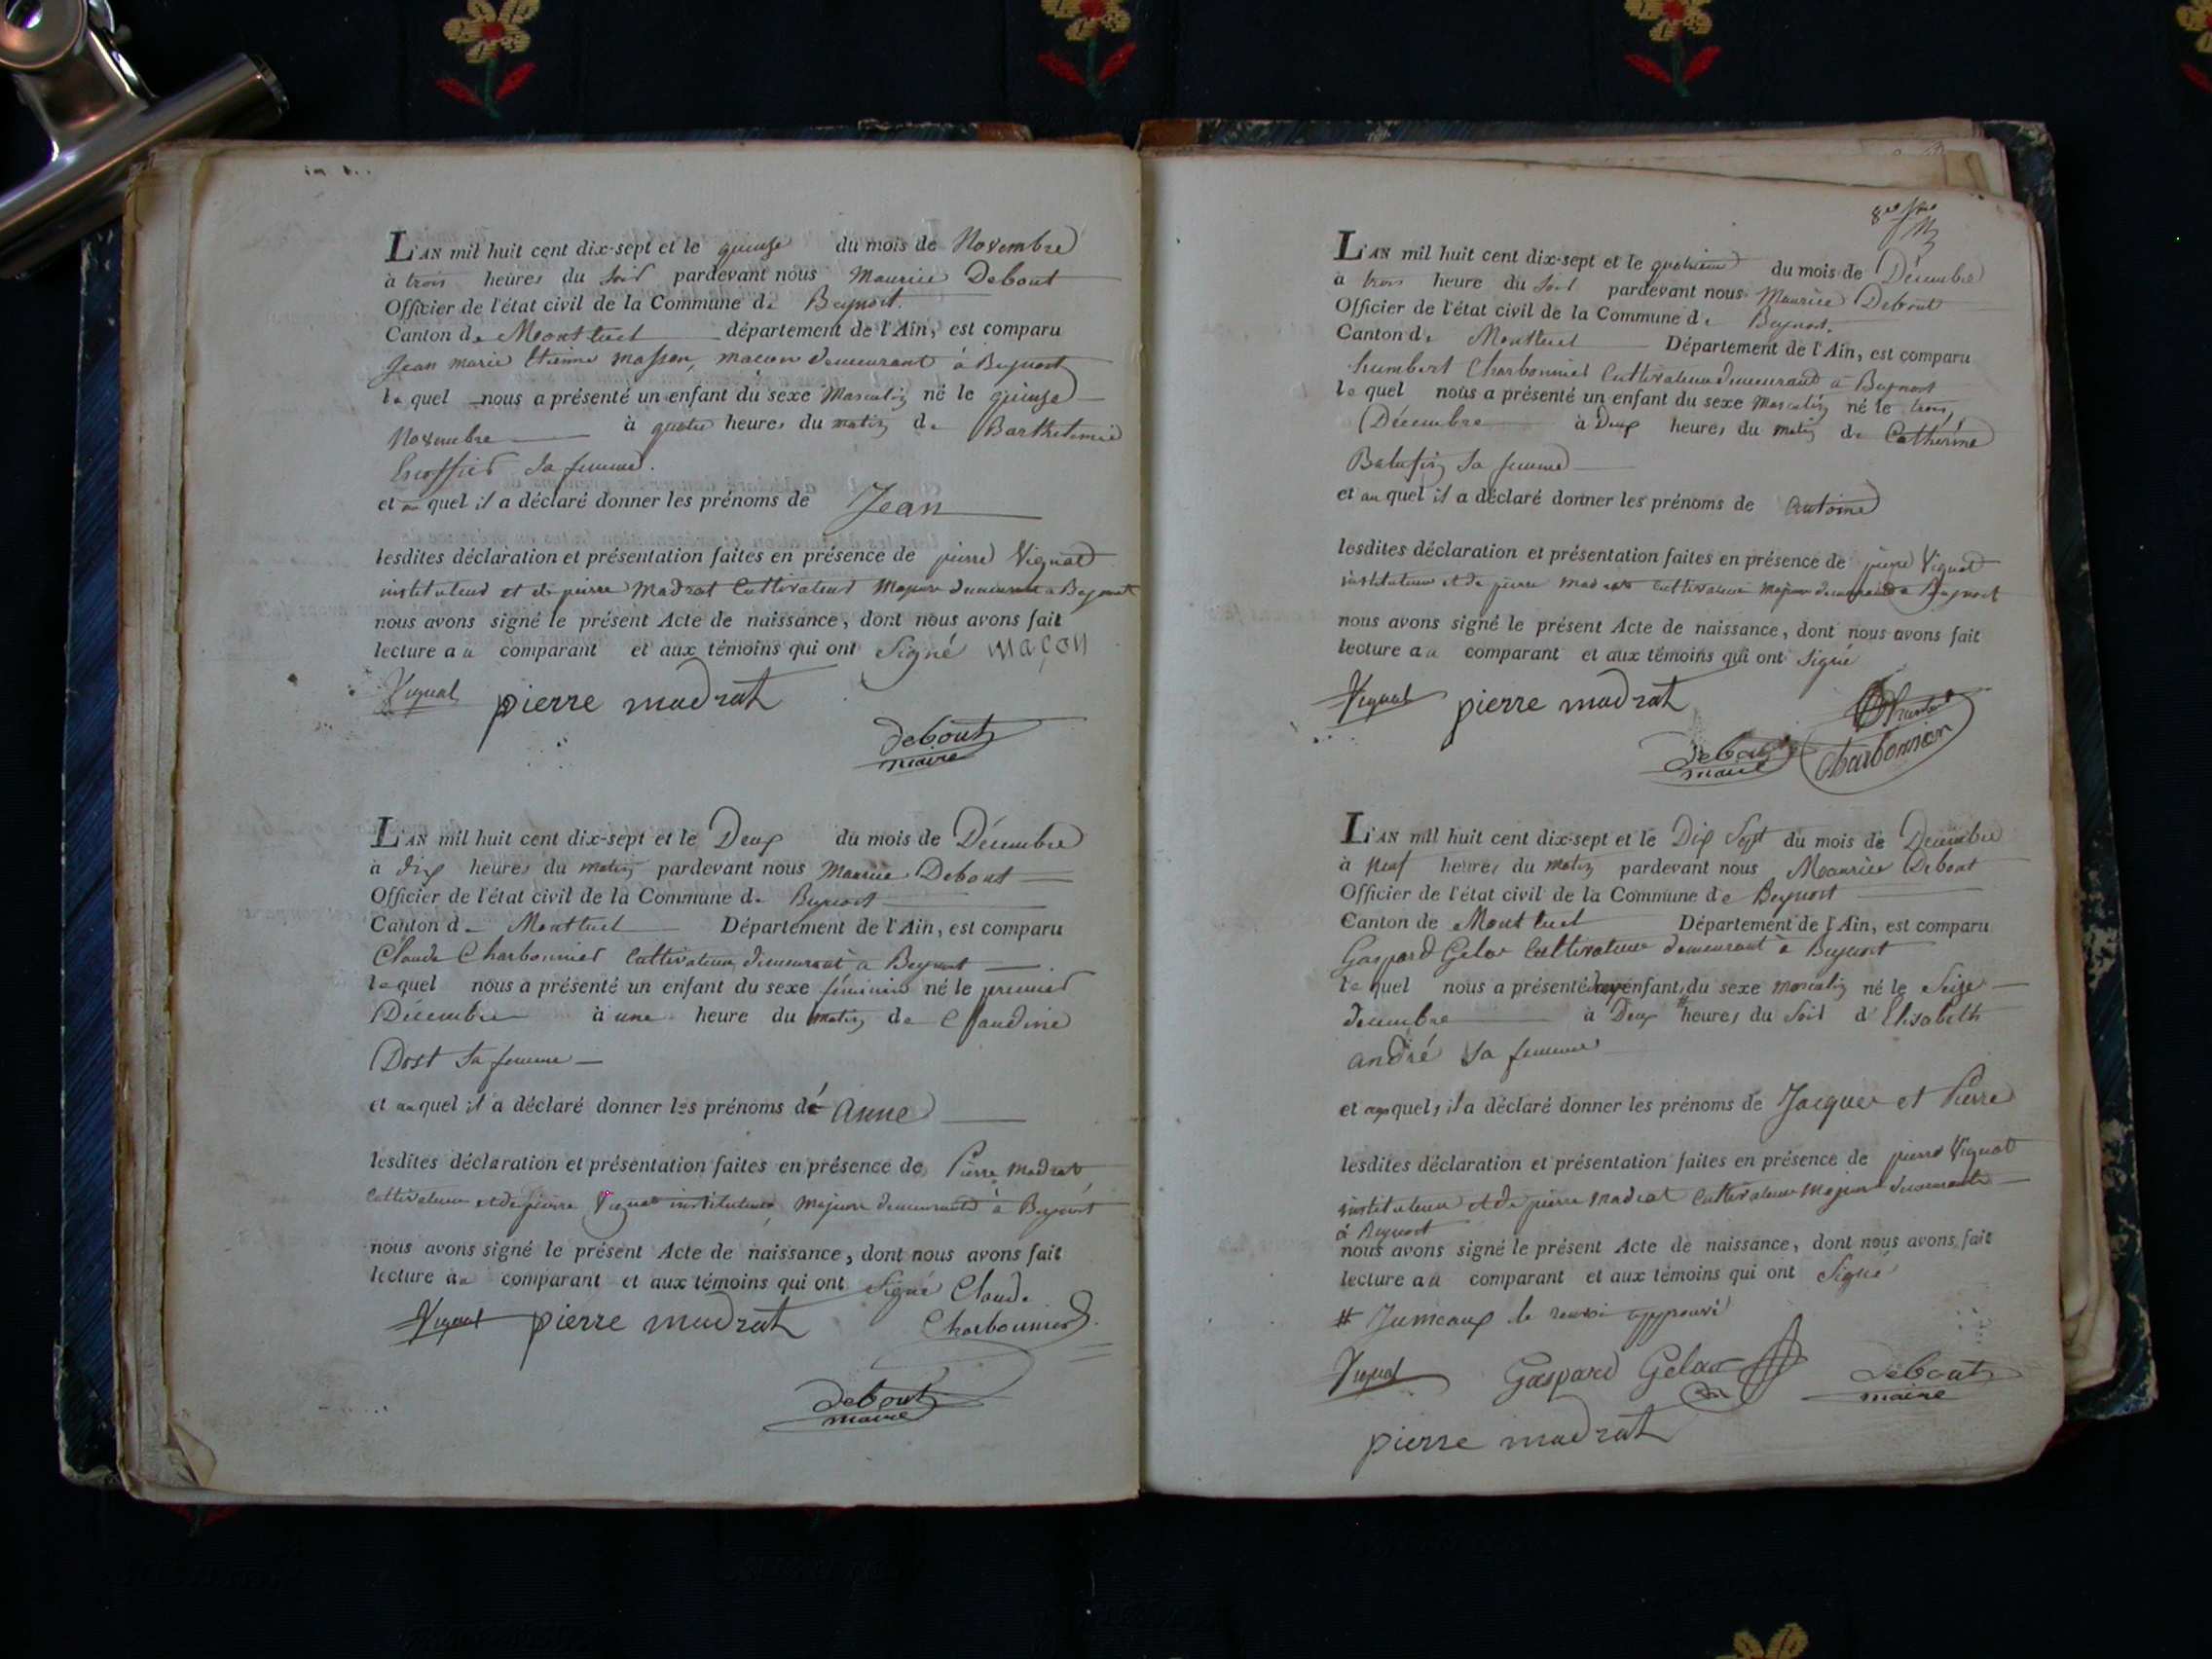 L'AN mil huit cent dix-sept et le quinze du mois de Novembre
à trois heures du soir pardevant nous Maurice Debout
Officier de l'état civil de la Commune de Beynost
Canton de Montluel département de l'Ain, est comparu
Jean marie Etienne masson, macon demeurant à Beynost
lequel nous a présenté un enfant du sexe Masculin né le quinze
Novembre à quatre heures du matin de Barthelemie
Escoffier sa femme.
et auquel il a déclaré donner les prénoms de Jean
lesdites déclaration et présentation faites en présence de pierre Vignat
instituteur et de pierre Madrat Cultivateur Majeurs demeurant a Beynost
nous avons signé le présent Acte de naissance, dont nous avons fait
lecture au comparant et aux témoins qui ont Signé maçon
Vignat pierre madrat
debout
maire
L'AN mil huit cent dix-sept et le Deux du mois de Décembre
à dix heures du matin pardevant nous Maurice Debout
Officier de l'état civil de la Commune de Beynost
Canton de Montluel Département de l'Ain, est comparu
Claude Charbonnier Cultivateur demeurant a Beynost
lequel nous a présenté un enfant du sexe féminin né le premier
Décembre à une heure du matin de Claudine
Dost sa femme
et auquel il a déclaré donner les prénoms de anne
lesdites déclaration et présentation faites en présence de Pierre Madrat
Cultivateur et de pierre Vignat instituteur, Majeurs demeurants à Beynost
nous avons signé le présent Acte de naissance, dont nous avons fait
lecture au comparant et aux témoins qui ont Signé Claude
Vignat pierre madrat Charbonnier
debout
maire
L'AN mil huit cent dix-sept et le quatrieme du mois de Décembre
à trois heure du soir pardevant nous Maurice Debout
Officier de l'état civil de la Commune de Beynost.
Canton de Montluel Département de l'Ain, est comparu
humbert Charbonnier Cultivateur demeurant à Beynost
lequel nous a présenté un enfant du sexe Masculin né le trois
Décembre à Deux heures du matin de Catherine
sa femme
et auquel il a déclaré donner les prénoms de Antoine
lesdites déclaration et présentation faites en présence de pierre Vignat
instituteur et de pierre madrat Cultivateur Majeurs demeurand a Beynost
nous avons signé le présent Acte de naissance, dont nous avons fait
lecture au comparant et aux témoins qui ont signé
Vignat pierre madrat
debout
maire Charbonnier
L'AN mil huit cent dix-sept et le Dix Sept du mois de Decembre
à Neuf heures du matin pardevant nous Maurice Debout
Officier de l'état civil de la Commune de Beynost
Canton de Montluel Département de l'Ain, est comparu
Gaspard Gelas Cultivateur demeurant a Beynost
lequel nous a présenté deux enfants du sexe masculin né le Seize
decembre à Deux # heures du Soir d'Elisabeth
andré sa femme
et auxquels il a déclaré donner les prénoms de Jacques et Pierre
lesdites déclaration et présentation faites en présence de pierre Vignat
instituteur et de pierre Madrat Cultivateur Majeurs demeurants
à Beynost
nous avons signé le présent Acte de naissance, dont nous avons fait
lecture au comparant et aux témoins qui ont Signé
# Jumeaux le renvoi approuvé
Vignat Gaspard Gelas debout
maire
pierre madrat